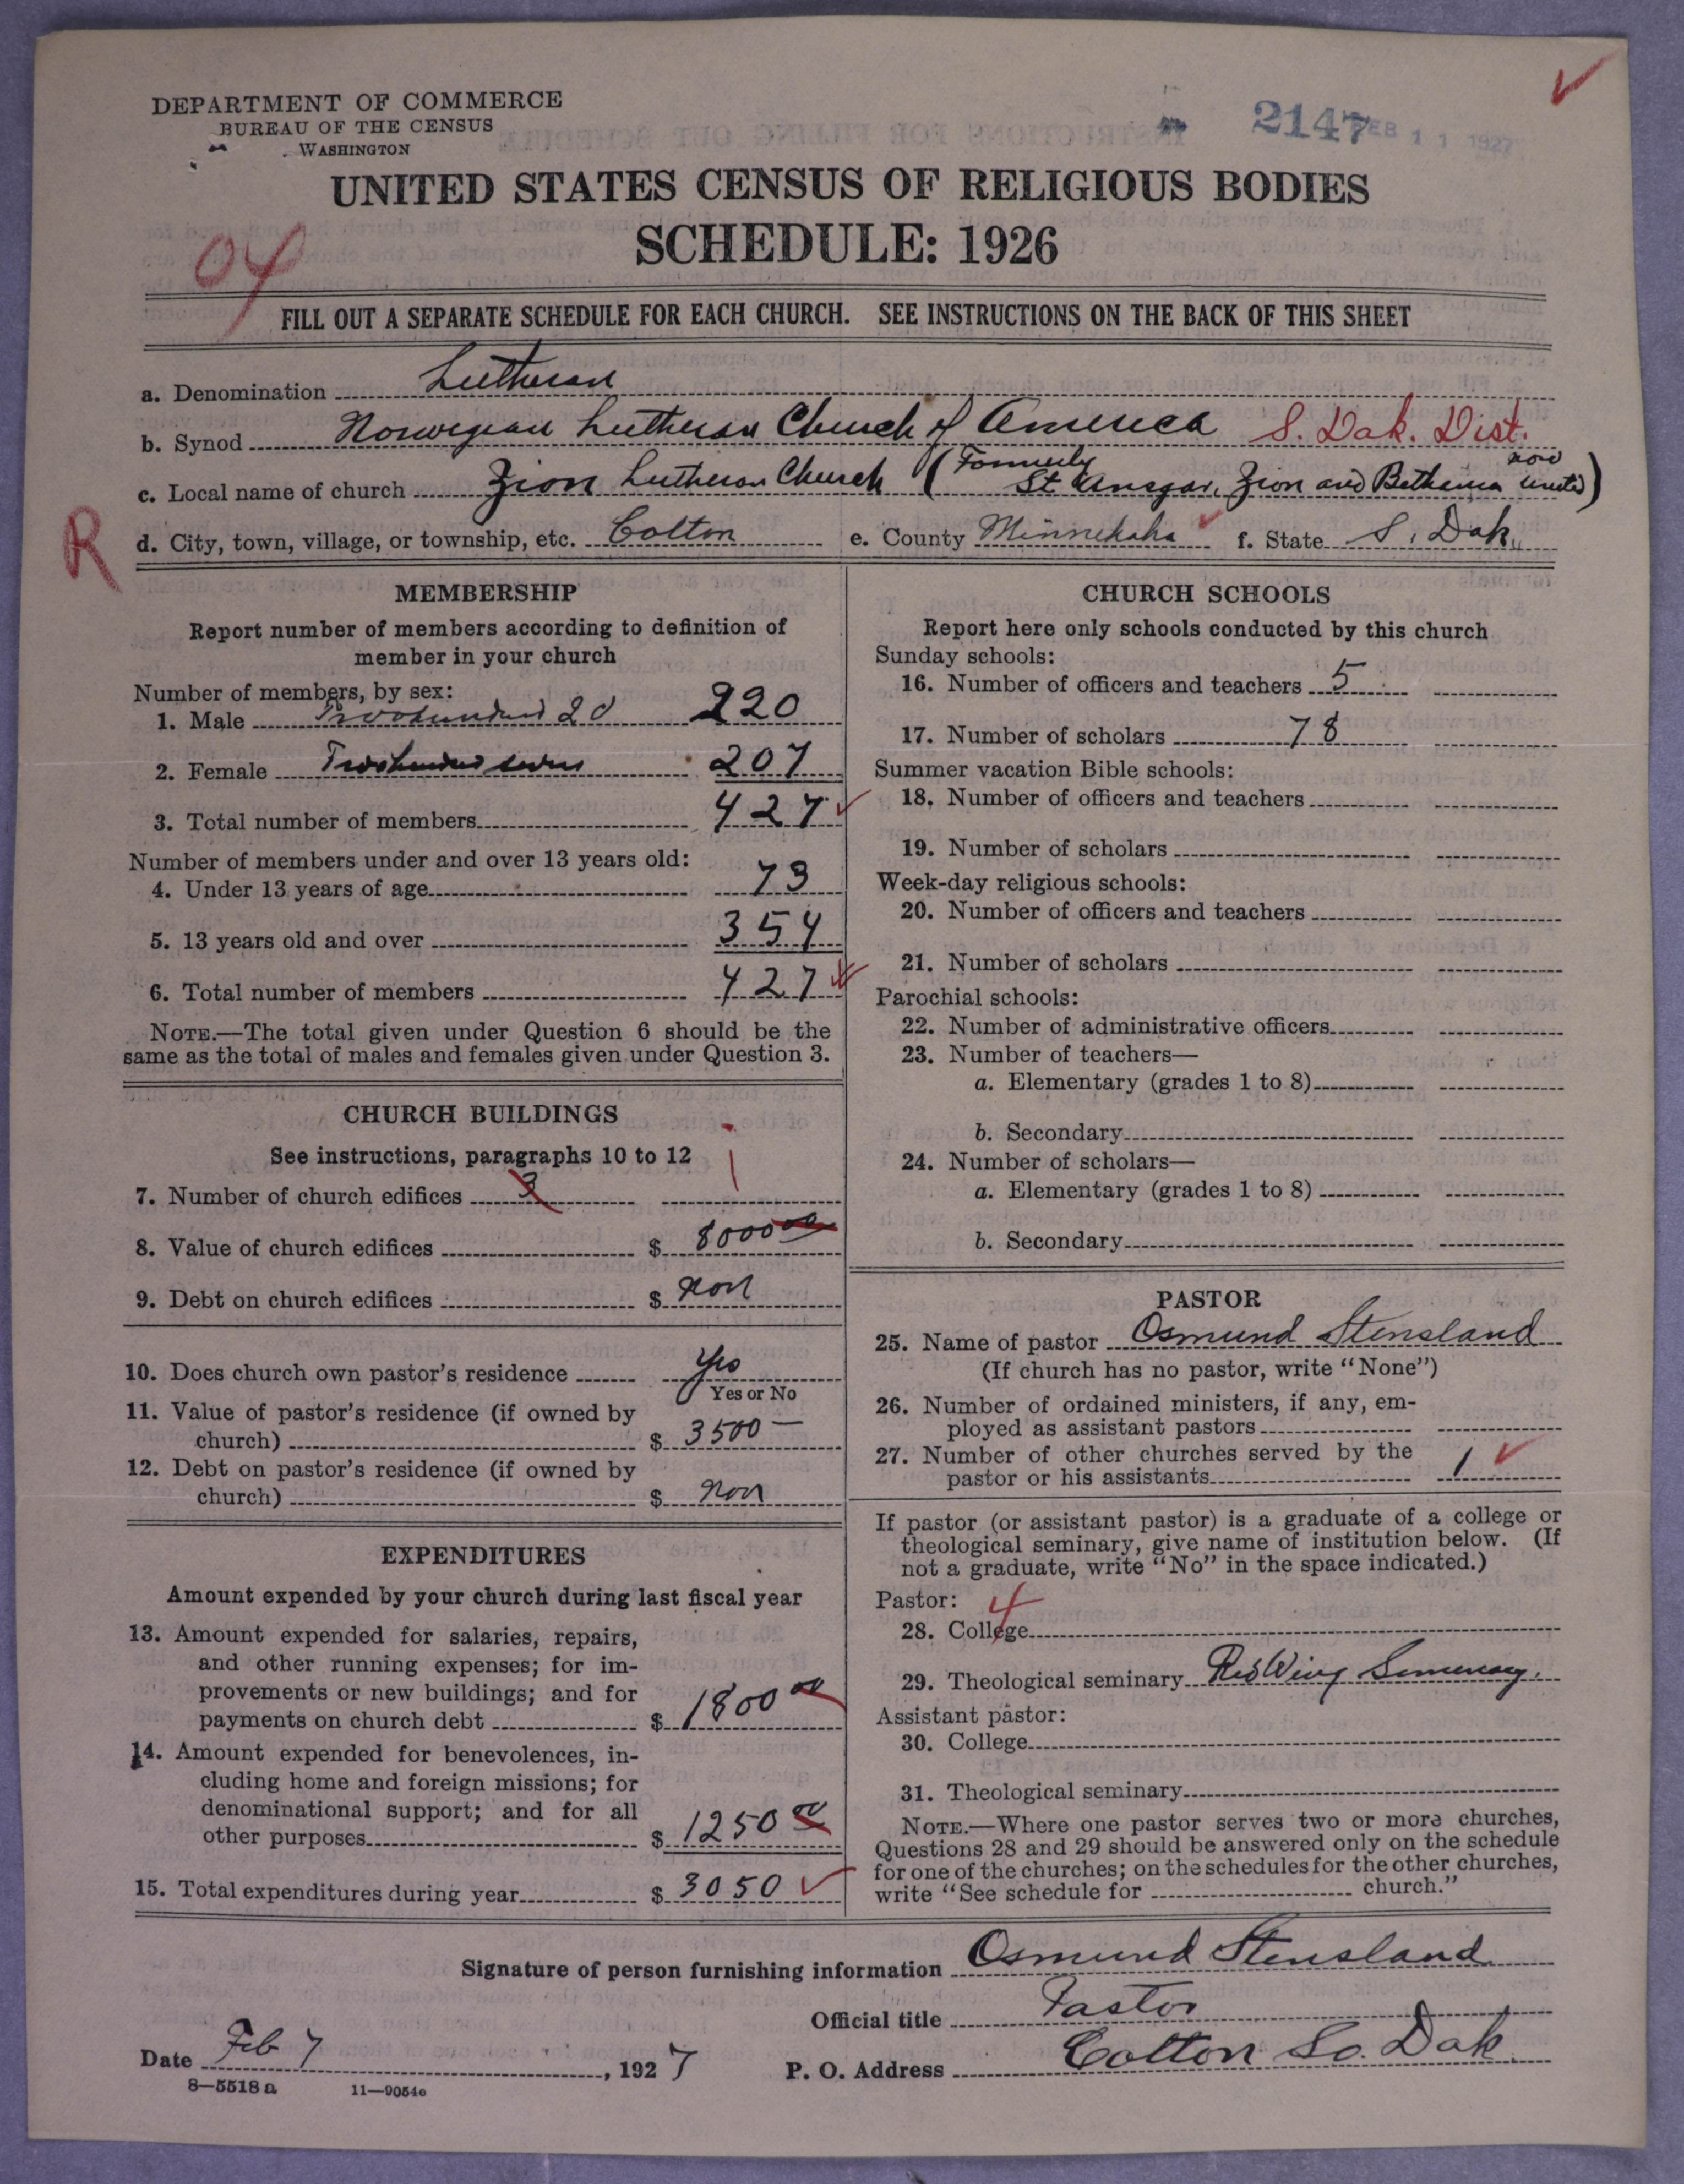 DEPARTMENT OF COMMERCE
BUREAU OF THE CENSUS
WASHINGTON
2147 FEB 11 1927
UNITED STATES CENSUS OF RELIGIOUS BODIES
SCHEDULE: 1926
04
FILL OUT A SEPARATE SCHEDULE FOR EACH CHURCH. SEE INSTRUCTIONS ON THE BACK OF THIS SHEET
a. Denomination Lutheran
b. Synod Norwegian Lutheran Church of America S. Dak. Dist.
c. Local name of church Zion Lutheran Church (Formerly St Ansgar, Zion and Bethania now united)
R
d. City, town, village, or township, etc. Colton e. County Minnehaha f. State S. Dak.
MEMBERSHIP
Report number of members according to definition of
member in your church
Number of members, by sex:
1. Male Twohundred 20 220
2. Female Twohundred seven 207
3. Total number of members 427
Number of members under and over 13 years old:
4. Under 13 years of age 73
5. 13 years old and over 354
6. Total number of members 427
NOTE.—The total given under Question 6 should be the
same as the total of males and females given under Question 3.
CHURCH BUILDINGS
See instructions, paragraphs 10 to 12
7. Number of church edifices 3 1
8. Value of church edifices $ 8000 00
9. Debt on church edifices $ Non
10. Does church own pastor's residence Yes
Yes or No
11. Value of pastor's residence (if owned by
church) $ 3500 —
12. Debt on pastor's residence (if owned by
church) $ Non
EXPENDITURES
Amount expended by your church during last fiscal year
13. Amount expended for salaries, repairs,
and other running expenses; for im-
provements or new buildings; and for
payments on church debt $ 1800 00
14. Amount expended for benevolences, in-
cluding home and foreign missions; for
denominational support; and for all
other purposes $ 1250 00
15. Total expenditures during year $ 3050
CHURCH SCHOOLS
Report here only schools conducted by this church
Sunday schools:
16. Number of officers and teachers 5
17. Number of scholars 78
Summer vacation Bible schools:
18. Number of officers and teachers
19. Number of scholars
Week-day religious schools:
20. Number of officers and teachers
21. Number of scholars
Parochial schools:
22. Number of administrative officers
23. Number of teachers—
a. Elementary (grades 1 to 8)
b. Secondary
24. Number of scholars—
a. Elementary (grades 1 to 8)
b. Secondary
PASTOR
25. Name of pastor Osmund Stensland
(If church has no pastor, write "None")
26. Number of ordained ministers, if any, em-
ployed as assistant pastors
27. Number of other churches served by the
pastor or his assistants 1
If pastor (or assistant pastor) is a graduate of a college or
theological seminary, give name of institution below. (If
not a graduate, write "No" in the space indicated.)
Pastor: 4
28. College
29. Theological seminary Red Wing Seminary.
Assistant pastor:
30. College
31. Theological seminary
NOTE.—Where one pastor serves two or more churches,
Questions 28 and 29 should be answered only on the schedule
for one of the churches; on the schedules for the other churches,
write "See schedule for church."
Signature of person furnishing information Osmund Stensland
Official title Pastor
Date Feb 7, 1927 P. O. Address Colton So. Dak
8—5518 a 11—9054e